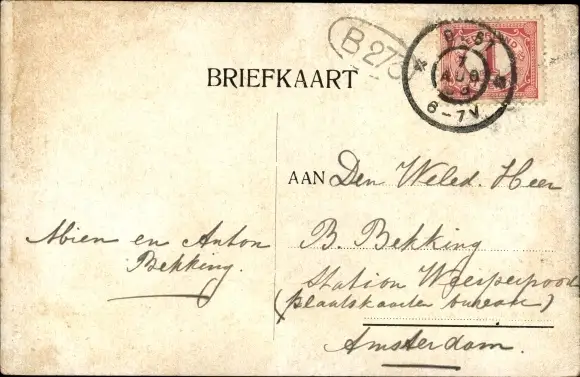 B 278
BEST
7
AUG
6-7V.
BRIEFKAART
AAN Den Weled. Heer
B. Bekking
Station Weesperpoort
(plaatskaarten bureau)
Amsterdam.
Mien en Anton
Bekking.